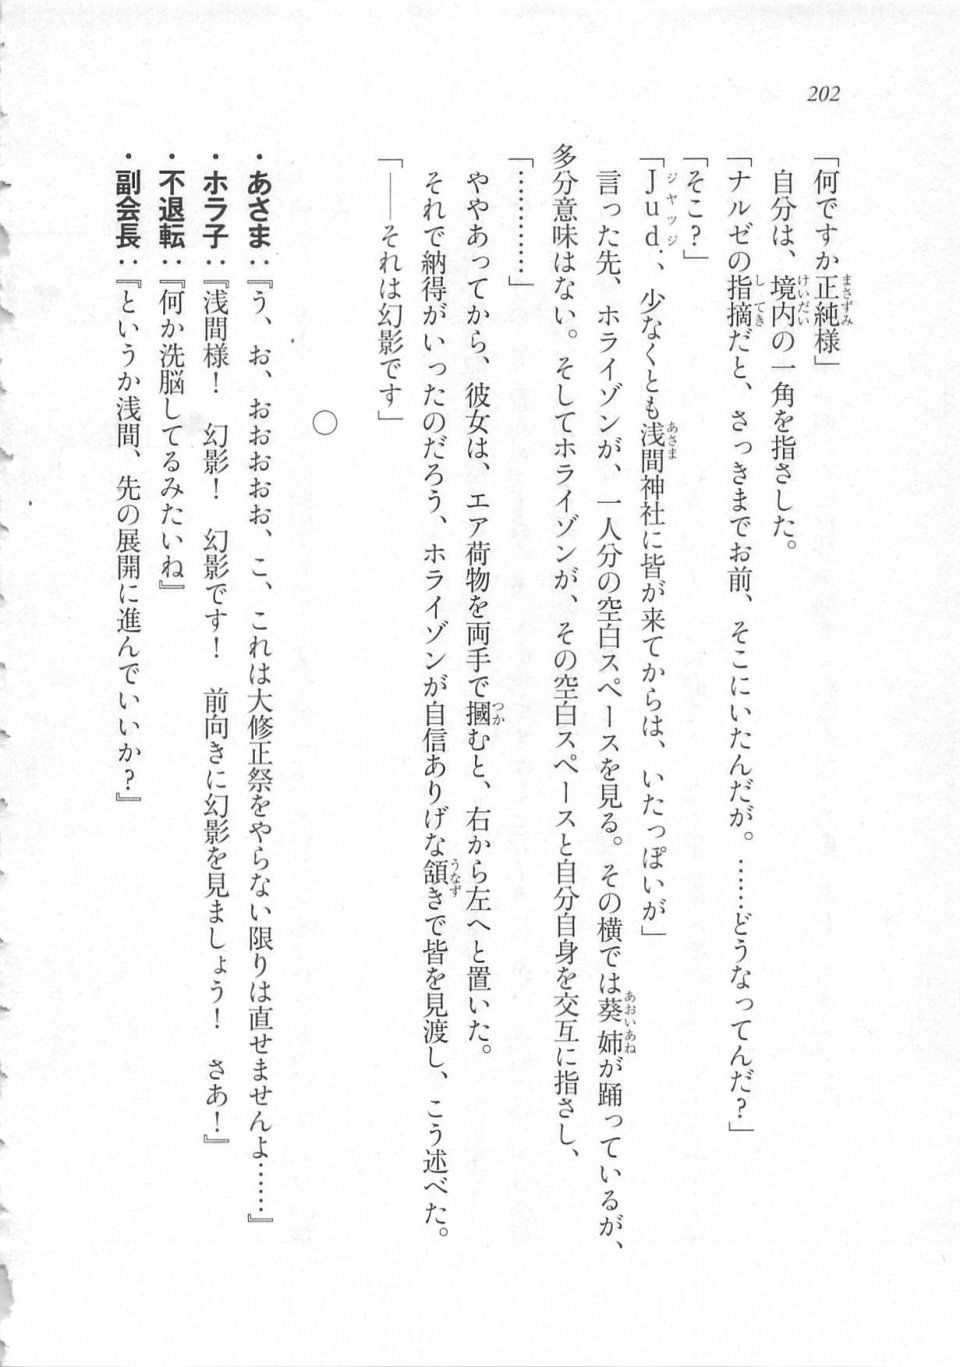 202
「何ですか正純様」
自分は、境内の一角を指さした。
「ナルゼの指摘だと、さっきまでお前、そこにいたんだが。……どうなってんだ?」
「そこ?」
「Jud.、少なくとも浅間神社に皆が来てからは、いたっぽいが」
言った先、ホライゾンが、一人分の空白スペースを見る。その横では葵姉が踊っているが、
多分意味はない。そしてホライゾンが、その空白スペースと自分自身を交互に指さし、
「…………」
ややあってから、彼女は、エア荷物を両手で摑むと、右から左へと置いた。
それで納得がいったのだろう、ホライゾンが自信ありげな頷きで皆を見渡し、こう述べた。
「――それは幻影です」
○
・あさま：『う、お、おおおおお、こ、これは大修正祭をやらない限りは直せませんよ……』
・ホラ子：『浅間様！　幻影！　幻影です！　前向きに幻影を見ましょう！　さあ！』
・不退転：『何か洗脳してるみたいね』
・副会長：『というか浅間、先の展開に進んでいいか?』